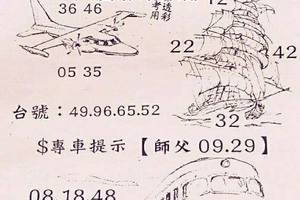 透彩
考用
36 46
22
42
12
05 35
台號：49.96.65.52
32
$專車提示【師父 09.29】
08.18.48